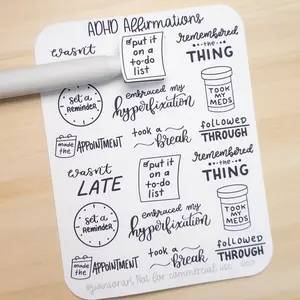 ADHD Affirmations
wasn't
put it
on a
to-do
list
remembered
the
THING
set a
REMINDER
embraced my
hyperfixation
TOOK
MY
MEDS
made
the
APPOINTMENT
took a
break
followed
THROUGH
wasn't
LATE
put it
on a
to-do
list
remembered
the
THING
set a
REMINDER
embraced my
hyperfixation
TOOK
MY
MEDS
made
the
APPOINTMENT
took a
break
followed
THROUGH
Not for commercial use